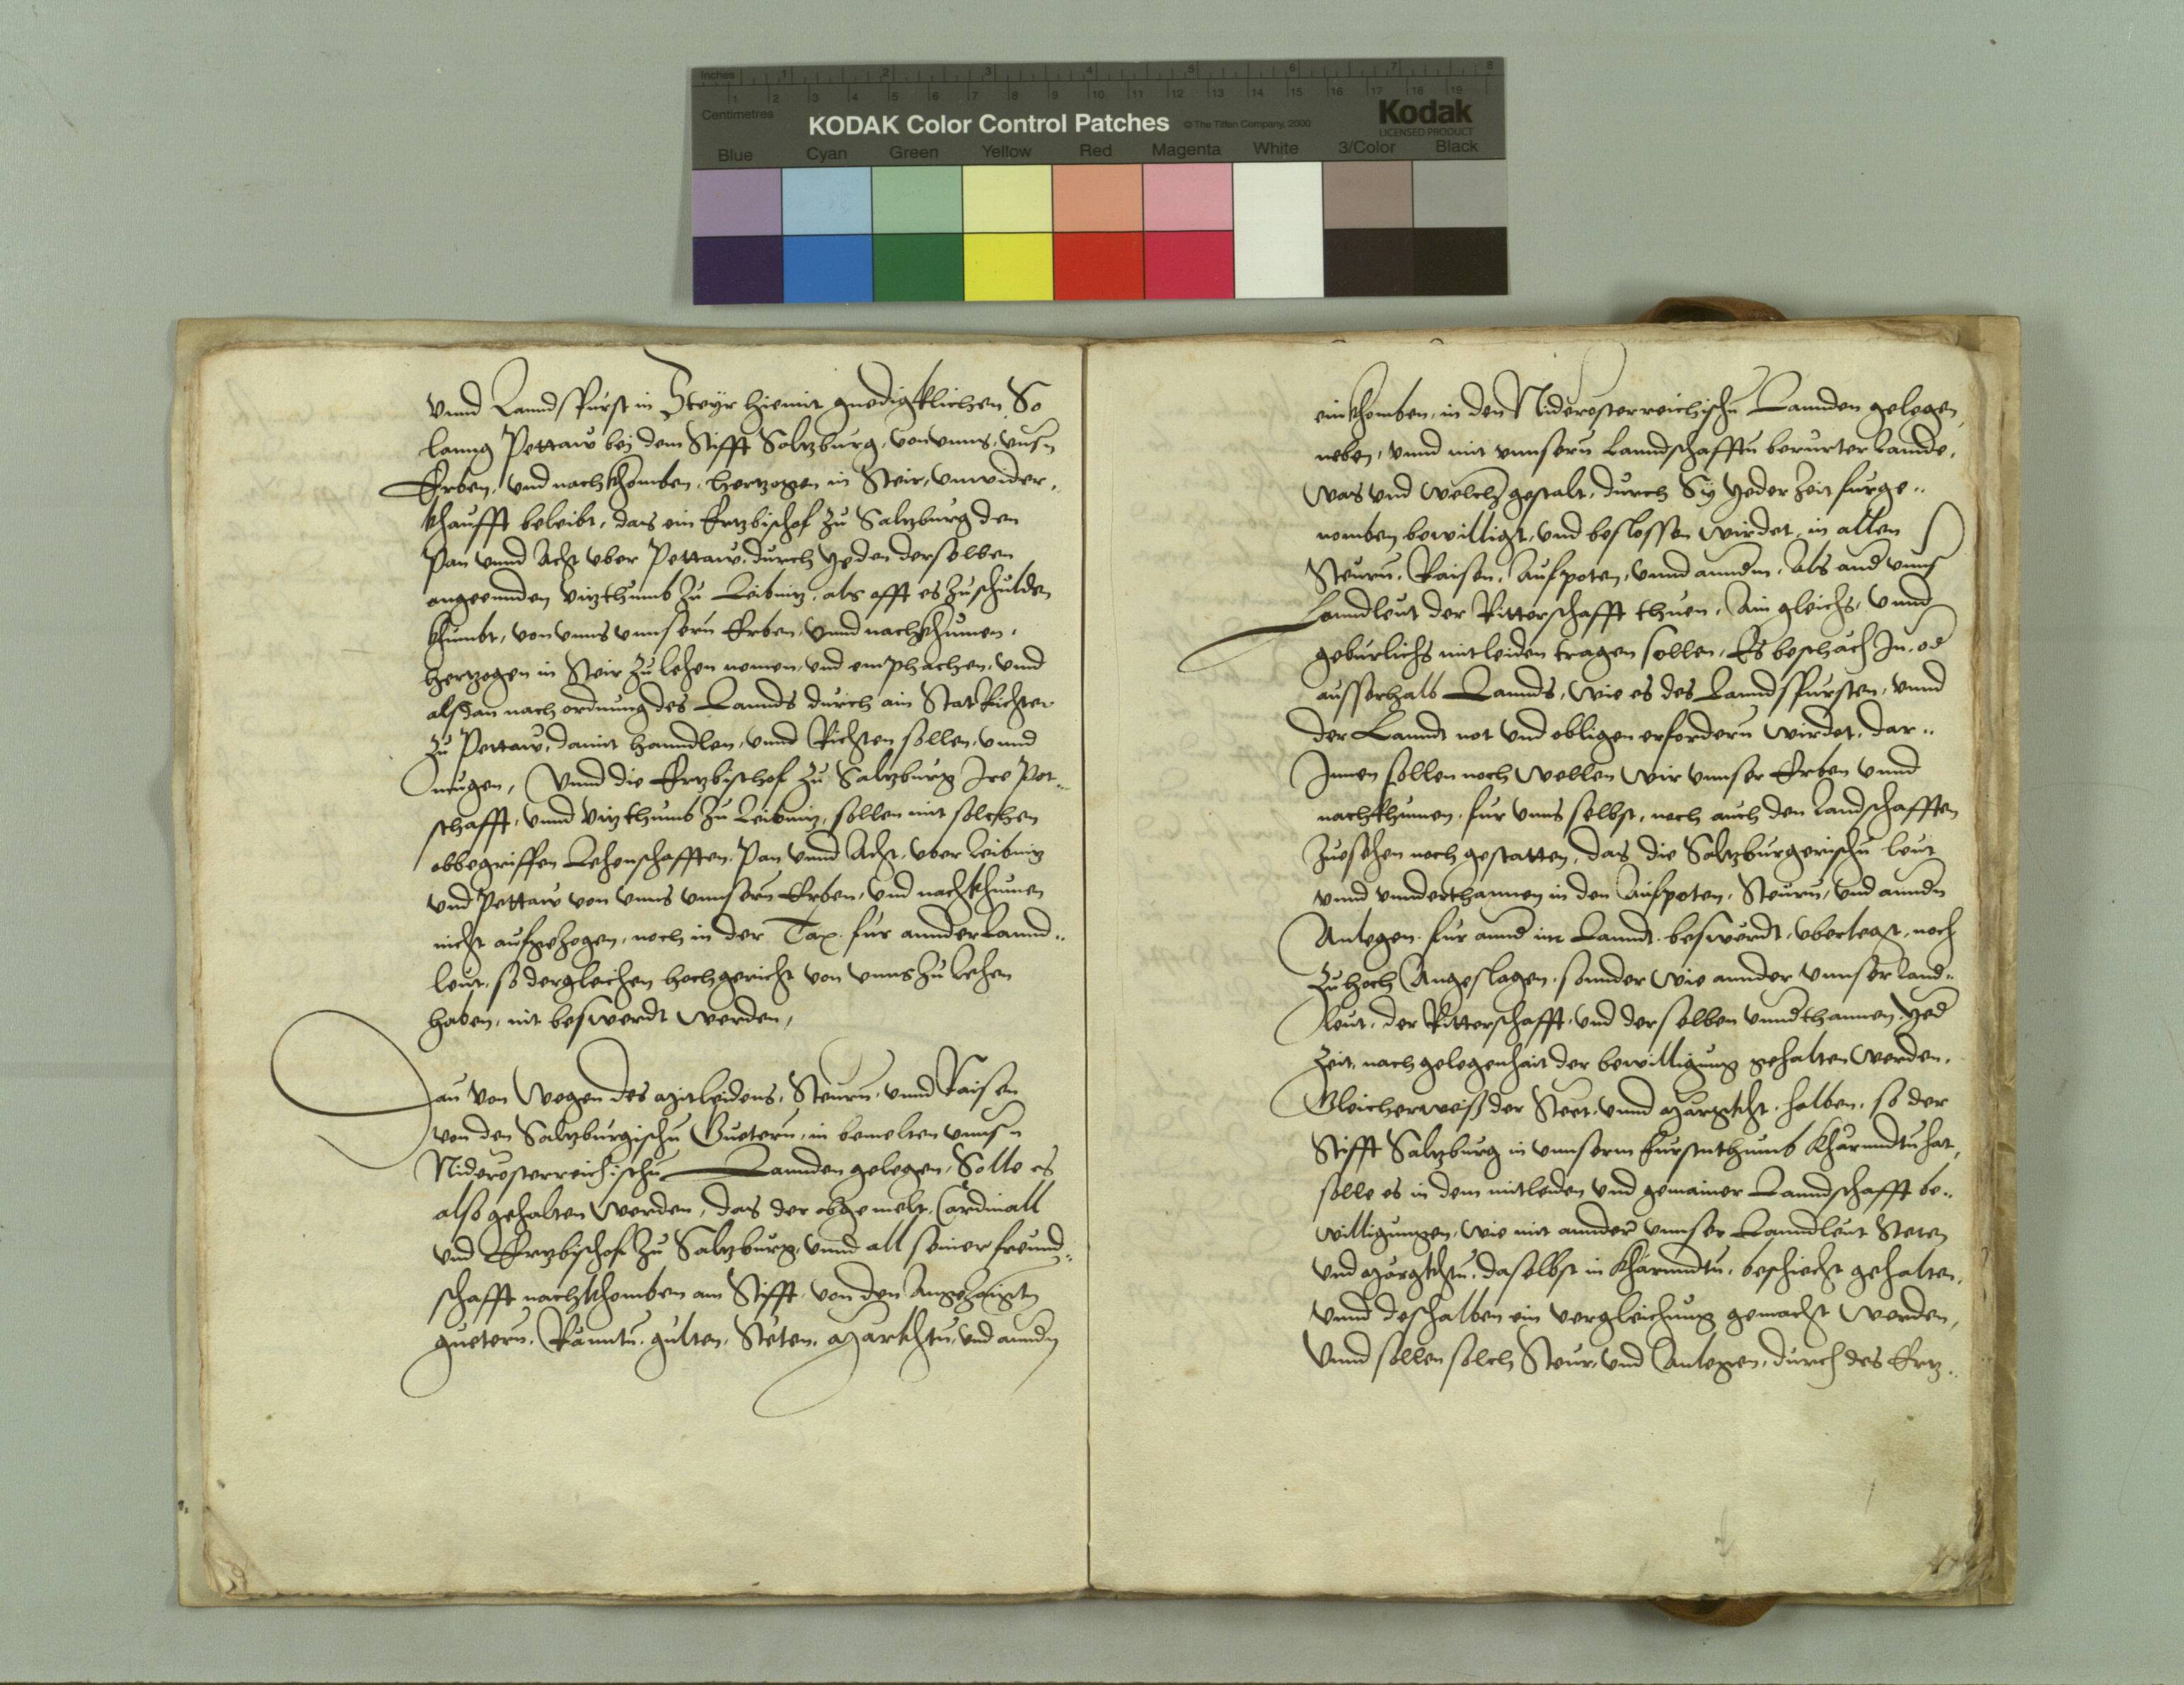 inches 1 2 3 4 5 6 7 8
1 2 3 4 5 6 7 8 9 10 11 12 13 14 15 16 17 18 19
Centimetres
KODAK Color Control Patches © The Tiffen Company, 2000 Kodak
LICENSED PRODUCT
Blue Cyan Green Yellow Red Magenta White 3/Color Black
vnnd Lanndsfürst in Steyr hiemit gnedigklichen, So
lanng Pettaw bej dem Stifft Saltzburg, von vnns, vnsn
Erben, vnd nachkhomben, hertzogen in Steir, vnwider,
khaufft beleibt, das ein Ertzbischof zu Saltzburg den
Pan vnnd Acht vber Pettaw, durch yeden derselben
vitzthumb zu Leibnitz, als offt es zuschulden
khumbt, von vnns vnnsern Erben, vnnd nachkhumen,
hertzogen in Steir zu lehen nemen, vnd emphachen, vnd
alsdan nach ordnung des Lannds durch ain StatRichter
zu Pettaw, damit hanndlen, vnnd Richten sollen, vnnd
mugen, Vnnd die Ertzbischof zu Saltzburg Ire Pot..
schafft, vnnd vitzthumb zu Leibnitz, sollen mit solchen
obbegriffen Lehenschafften, Pan vnnd Acht, vber Leibnitz
vnd Pettaw von vnns vnnsern Erben, vnd nachkhumen
nicht aufgezogen, noch in der Tax fur annder Lannd..
leut, so dergleichen hochgericht von vnns zu lehen
haben, nit beswerdt werden,
Dan von wegen des mitleidens, Steurn, vnnd Raisen
von den Saltzburgischn Guetern, in bemelten vnnsn
Niderosterreichischn Lannden gelegen, Solle es
also gehalten werden, das der obgemelt, Cardinall
vnd Ertzbischof zu Saltzburg, vnnd all seiner freund..
schafft nachkhomben am Stifft, von den Angezaigtn
guetern, Rännten, gulten, Steten, Märckhtn, vnd anndn
einkhomben, in den Niderosterreichischn Lannden gelegen,
neben, vnnd mit vnnsern Lanndschafftn berurter Lannde,
was vnd welcher gestalt, durch Sy yeder zeit furge..
nomben, bewilligt, vnd beslossen wirdet, in allen
Steurn, Raisen, Aufpoten, vnnd anndrn, Als annd vnns
Lanndleut der Ritterschafft thuen, Ain gleichs, vnnd
geburlichs mitleiden tragen sollen, Es beschach In, od
ausserhalb Lannds, wie es des Lanndsfursten, vnnd
der Lanndt not vnd obligen erfordern wirdet, dar..
Innen sollen noch wellen wir vnnser Erben vnnd
nachkhumen, fur vnns selbst, noch auch den Landschafften
zuesehen noch gestatten, das die Saltzburgerischn leut
vnnd vnnderthannen in den Aufpoten, Steurn, vnd anndn
Anlegen fur annd im Lanndt beswerdt, vberlegt, noch
zu hoch Angeslagen, sonnder wie annder vnnser Land..
leut, der Ritterschafft, vnd derselben vnndthannen, yed
zeit, nach gelegenhait der bewilligung gehalten werden,
Gleicherweiß der Stet, vnnd Märgkht, halben, so der
Stifft Saltzburg in vnnserm Furstnthumb Khärnndtn hat,
solle es in dem mitleiden vnd gemainer Lanndschafft be..
willigungen, wie mit annder vnnser Lanndleut Steten
vnd Märgkhtn, daselbst in Khärnndtn, beschiecht gehalten,
vnnd deshalben ein vergleichung gemacht werden,
Vnnd sollen solch Steur, vnd Anlegen, durch des Ertz..